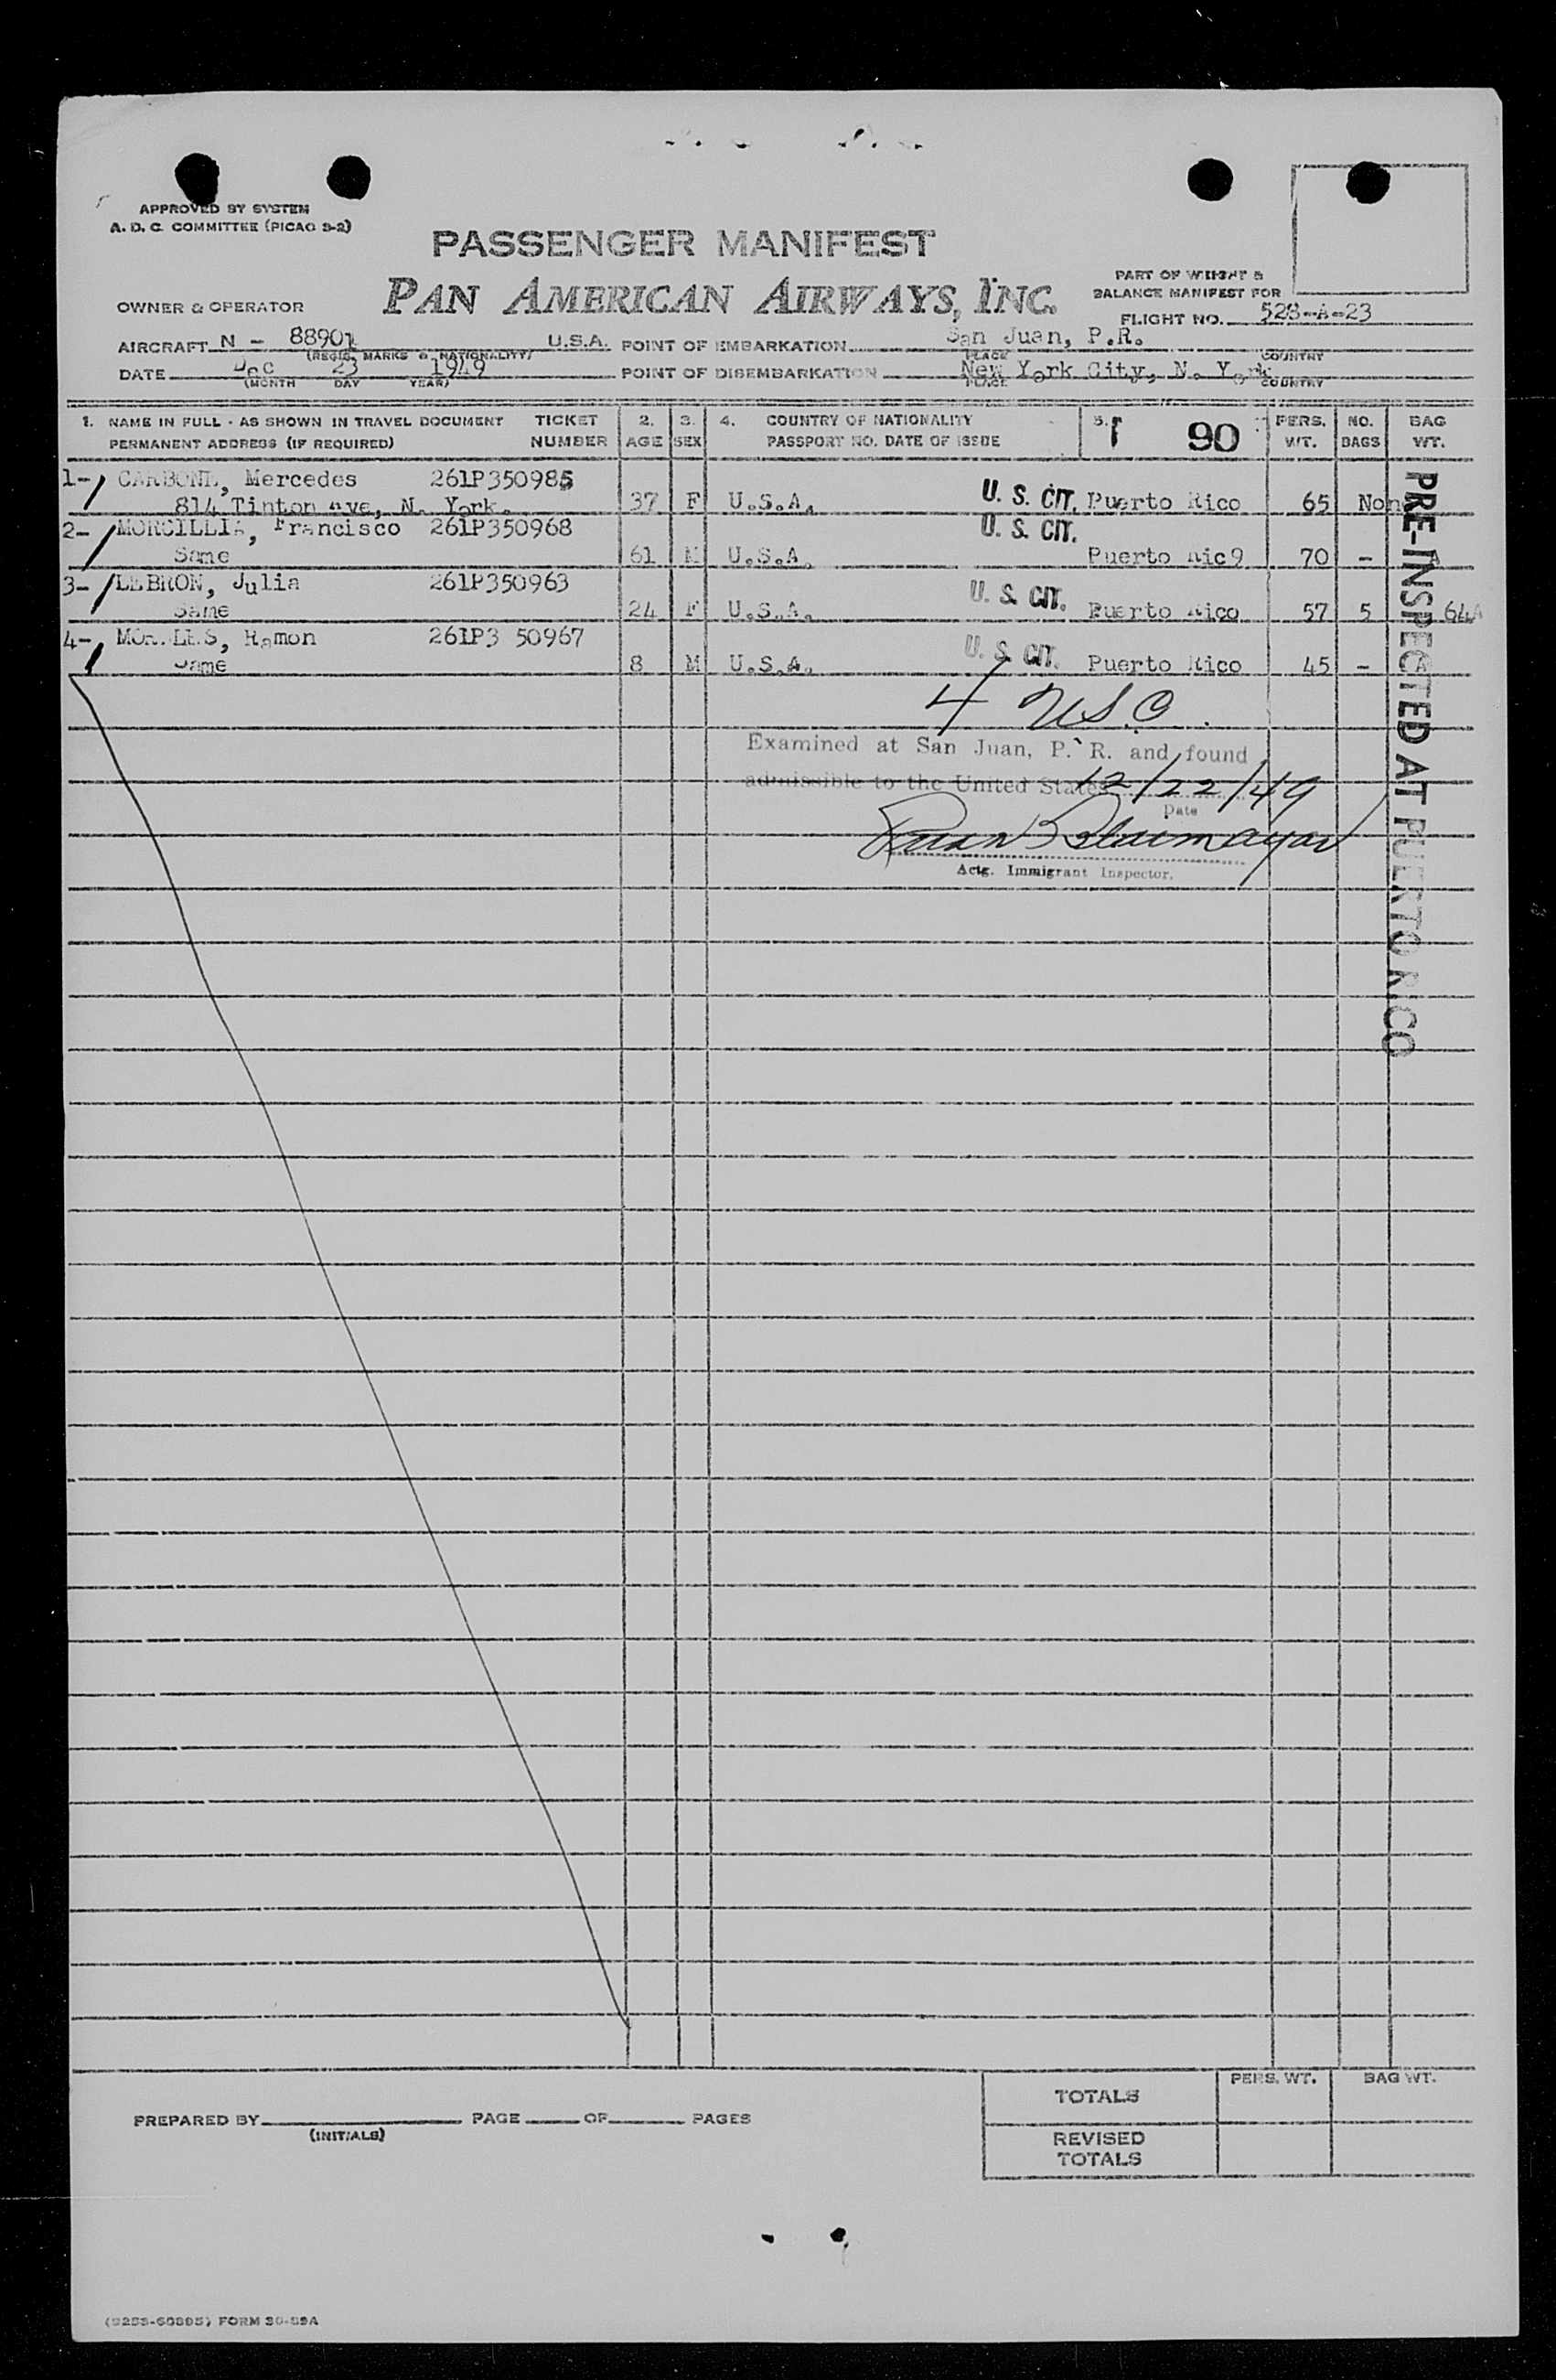 APPROVED BY SYSTEM
A. D. C. COMMITTEE (PICAO 9-2)
PASSENGER MANIFEST
PAN AMERICAN AIRWAYS, INC.
PART OF WEIGHT &
BALANCE MANIFEST FOR
OWNER & OPERATOR
FLIGHT NO. 528-A-23
AIRCRAFT N - 88901 U.S.A. POINT OF EMBARKATION San Juan, P.R.
(REGIS. MARKS & NATIONALITY) PLACE COUNTRY
DATE Dec 23 1949 POINT OF DISEMBARKATION New York City, N. York
(MONTH DAY YEAR) PLACE COUNTRY
1. NAME IN FULL - AS SHOWN IN TRAVEL DOCUMENT TICKET 2. 3. 4. COUNTRY OF NATIONALITY 5. 90 PERS. NO. BAG
PERMANENT ADDRESS (IF REQUIRED) NUMBER AGE SEX PASSPORT NO. DATE OF ISSUE WT. BAGS WT.
1- CARBONE, Mercedes 261P350985
814 Tinton Ave, N. York. 37 F U.S.A. U. S. CIT. Puerto Rico 65 None
2- Francisco 261P350968 U. S. CIT.
Same 61 M U.S.A. Puerto Ric9 70 -
3- LEBRON, Julia 261P350963
Same 24 F U.S.A. U. S. CIT. Puerto Rico 57 5 64A
4- MORALES, Ramon 261P3 50967
Same 8 M U.S.A. U. S. CIT. Puerto Rico 45 -
PRE-INSPECTED AT PUERTO RICO
4 USC.
Examined at San Juan, P. R. and found
admissible to the United States 12/22/49
Date
Actg. Immigrant Inspector.
TOTALS PERS. WT. BAG WT.
PREPARED BY PAGE OF PAGES
(INITIALS)
REVISED
TOTALS
FORM 30-59A